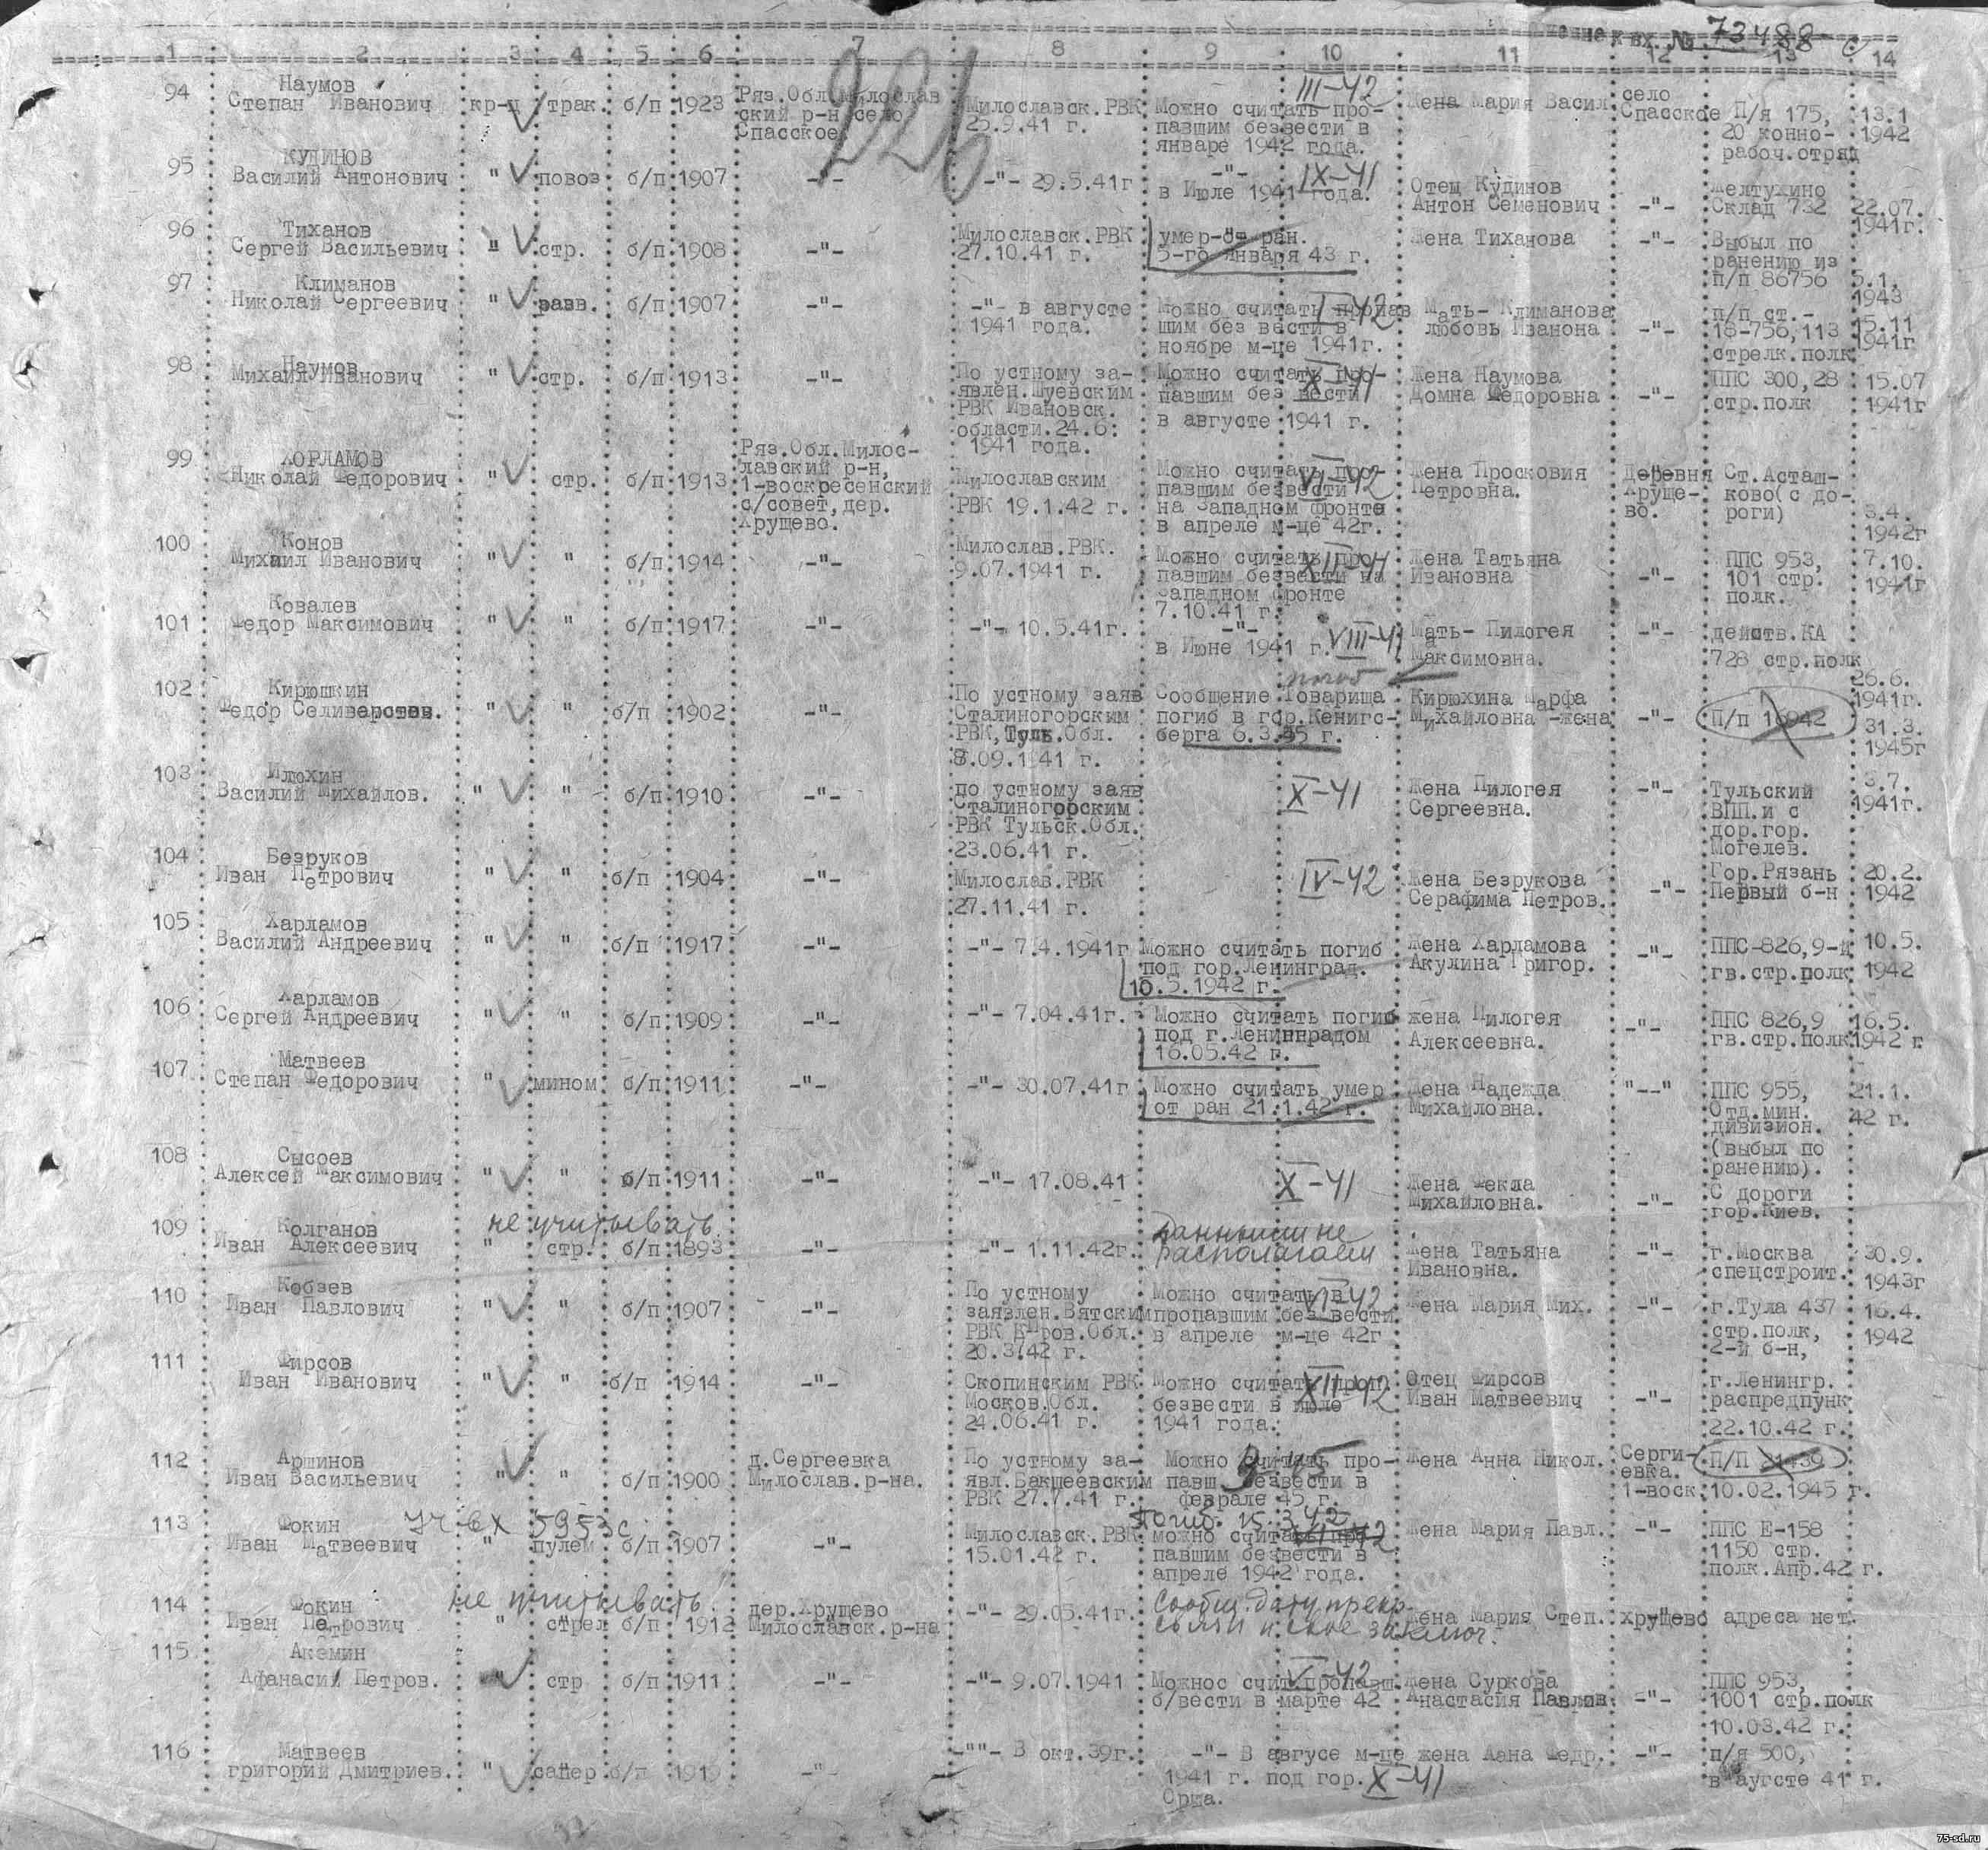 к вх. № 73488 с
1 2 3 4 5 6 7 8 9 10 11 12 13 14
226
94 Наумов Степан Иванович кр-ц трак. б/п 1923 Ряз.Обл.Милославский р-н, село Спасское Милославск.РВК 25.9.41 г. Можно считать пропавшим безвести в январе 1942 года. III-42 Жена Мария Васил. село Спасское П/я 175, 20 конно-рабоч.отряд 13.1 1942
95 КУДИНОВ Василий Антонович " повоз б/п 1907 -"- -"- 29.5.41г -"- в Июле 1941 года. IX-41 Отец Кудинов Антон Семенович -"- Желтухино Склад 732 22.07. 1941г.
96 Тиханов Сергей Васильевич " стр. б/п 1908 -"- Милославск.РВК 27.10.41 г. умер от ран. 5-го января 43 г. Жена Тиханова -"- Выбыл по ранению из п/п 86756 5.1. 1943
97 Климанов Николай Сергеевич " разв. б/п 1907 -"- -"- в августе 1941 года. Можно считать пропавшим без вести в ноябре м-це 1941г. I-42 Мать- Климанова любовь Иванона -"- п/п ст.- 18-756,113 стрелк.полк 15.11 1941г
98 Наумов Михаил Иванович " стр. б/п 1913 -"- По устному заявлен.Шуевским РВК Ивановск. области.24.6. 1941 года. Можно считать пропавшим без вести в августе 1941 г. X-41 Жена Наумова Домна Федоровна -"- ППС 300,28 стр.полк 15.07 1941г
99 ХОРЛАМОВ Николай Федорович " стр. б/п 1913 Ряз.Обл.Милославский р-н, 1-воскресенский с/совет,дер. Хрущево. Милославским РВК 19.1.42 г. Можно считать пропавшим безвести на Западном фронте в апреле м-це 42г. VI-42 Жена Просковия Петровна. Деревня Хрущево. Ст.Асташково(с дороги) 3.4. 1942г
100 Конов Михаил Иванович " " б/п 1914 -"- Милослав.РВК. 9.07.1941 г. Можно считать пропавшим безвести на Западном фронте 7.10.41 г. XII-41 Жена Татьяна Ивановна -"- ППС 953, 101 стр. полк. 7.10. 1941г
101 Ковалев Федор Максимович " " б/п 1917 -"- -"- 10.5.41г. -"- в Июне 1941 г. VIII-41 Мать- Пилогея Максимовна. -"- действ.КА 728 стр.полк 26.6. 1941г.
102 Кирюшкин Федор Селиверстов. " " б/п 1902 -"- По устному заяв Сталиногорским РВК,Туль.Обл. 8.09.41 г. Сообщение Товарища погиб в гор.Кенигсберга 6.3.45 г. погиб Кирюхина Марфа Михайловна -жена -"- П/п 16942 31.3. 1945г
103 Илюхин Василий Михайлов. " " б/п 1910 -"- по устному заяв Сталиногорским РВК Тульск.Обл. 23.06.41 г. X-41 Жена Пилогея Сергеевна. -"- Тульский ВПП.и с дор.гор. Могелев. 3.7. 1941г.
104 Безруков Иван Петрович " " б/п 1904 -"- Милослав.РВК 27.11.41 г. IV-42 Жена Безрукова Серафима Петров. -"- Гор.Рязань Первый б-н 20.2. 1942
105 Харламов Василий Андреевич " " б/п 1917 -"- -"- 7.4.1941г Можно считать погиб под гор.Ленинград. 10.5.1942 г. Жена Харламова Акулина Григор. -"- ППС-826,9-й гв.стр.полк 10.5. 1942
106 Харламов Сергей Андреевич " " б/п 1909 -"- -"- 7.04.41г. Можно считать погиб под г.Лениннрадом 16.05.42 г. жена Пилогея Алексеевна. -"- ППС 826,9 гв.стр.полк 16.5. 1942 г
107 Матвеев Степан Федорович " мином б/п 1911 -"- -"- 30.07.41г Можно считать умер от ран 21.1.42 г. Жена Надежда Михайловна. "--" ППС 955, Отд.мин. дивизион. (выбыл по ранению). 21.1. 42 г.
108 Сысоев Алексей Максимович " " б/п 1911 -"- -"- 17.08.41 X-41 Жена Фекла Михайловна. -"- С дороги гор.Киев.
109 Колганов Иван Алексеевич не учитывать " стр. б/п 1893 -"- -"- 1.11.42г. данными не располагаем Жена Татьяна Ивановна. -"- г.Москва спецстроит. 30.9. 1943г
110 Кобзев Иван Павлович " " б/п 1907 -"- По устному заявлен.Вятским РВК Киров.Обл. 20.3.42 г. Можно считать в пропавшим без вести в апреле м-це 42г VI-42 Жена Мария Мих. -"- г.Тула 437 стр.полк, 2-й б-н, 16.4. 1942
111 Фирсов Иван Иванович " " б/п 1914 -"- Скопинским РВК Москов.Обл. 24.06.41 г. Можно считать проп. безвести в июле 1941 года. XII-42 Отец Фирсов Иван Матвеевич -"- г.Ленингр. распредпунк 22.10.42 г.
112 Аршинов Иван Васильевич " " б/п 1900 д.Сергеевка Милослав.р-на. По устному заявл.Бакшеевским РВК 27.7.41 г. Можно считать пропавш. безвести в феврале 45 г. Жена Анна Никол. Сергиевка. 1-воск. П/П 21439 10.02.1945 г.
113 Фокин Иван Матвеевич уч вх 5953с " пулем б/п 1907 -"- Милославск.РВК 15.01.42 г. Погиб 15.3.42 можно считать пропавшим безвести в апреле 1942 года. VI-42 Жена Мария Павл. -"- ППС Е-158 1150 стр. полк.Апр.42 г.
114 Фокин Иван Петрович не учитывать " стрел б/п 1912 дер.Хрущево Милославск.р-на -"- 29.05.41г. Сообщ. дату прекр. связи и свое заключ. Жена Мария Степ. хрущево адреса нет.
115 Акемин Афанасий Петров. " стр б/п 1911 -"- -"- 9.07.1941 Можнос счит.пропавш. б/вести в марте 42 V-42 Жена Суркова Анастасия Павлов. -"- ППС 953, 1001 стр.полк 10.03.42 г.
116 Матвеев григорий Дмитриев. " сапер б/п 1919 -"- -""- 3 окт.39г. -"- В августе м-це 1941 г. под гор. Орша. X-41 жена Анна Федр. -"- п/я 500, в аугсте 41 г.
75-sd.ru